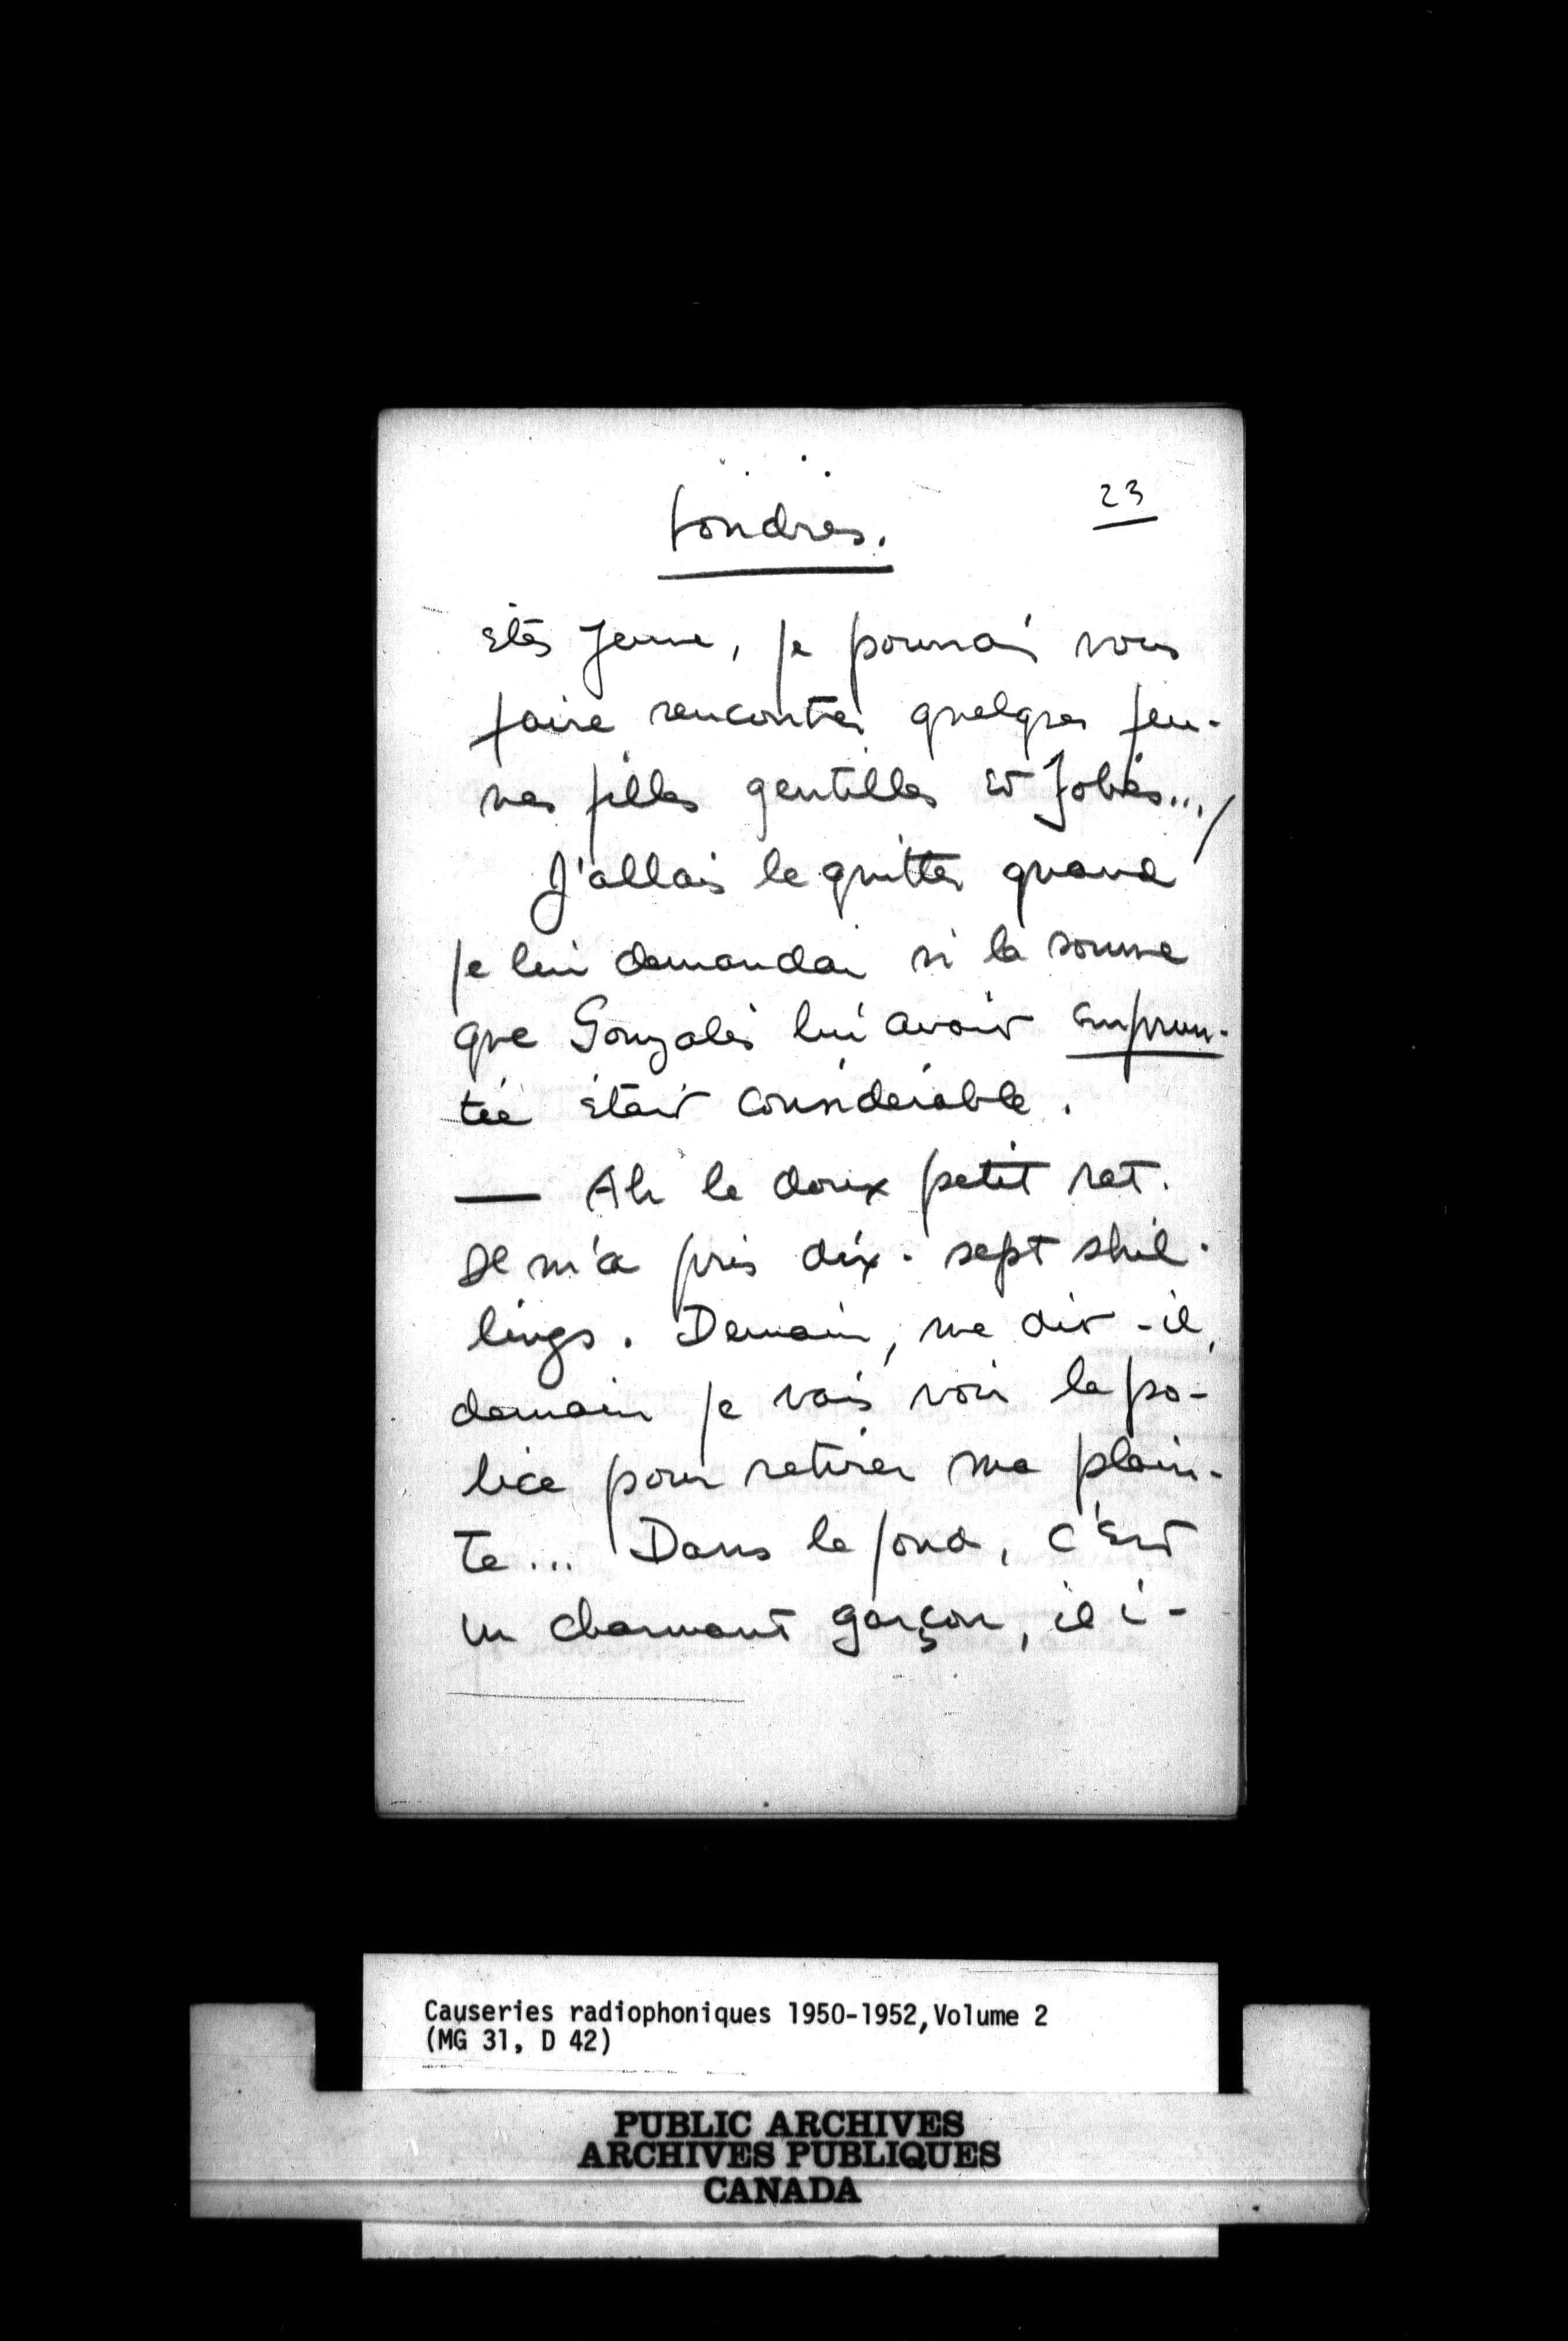 Londres.
23
êtes jeune, je pourrai vous
faire rencontrer quelques jeu-
nes filles gentilles et jolies...
J'allais le quitter quand
je lui demandai si la somme
que Gonzalès lui avait emprun-
tée était considérable.
— Ah le doux petit rat.
Il m'a pris dix-sept shil-
lings. Demain, me dit-il,
demain je vais voir la po-
lice pour retirer ma plain-
te... Dans le fond, c'est
un charmant garçon, il i-
Causeries radiophoniques 1950-1952, Volume 2
(MG 31, D 42)
PUBLIC ARCHIVES
ARCHIVES PUBLIQUES
CANADA